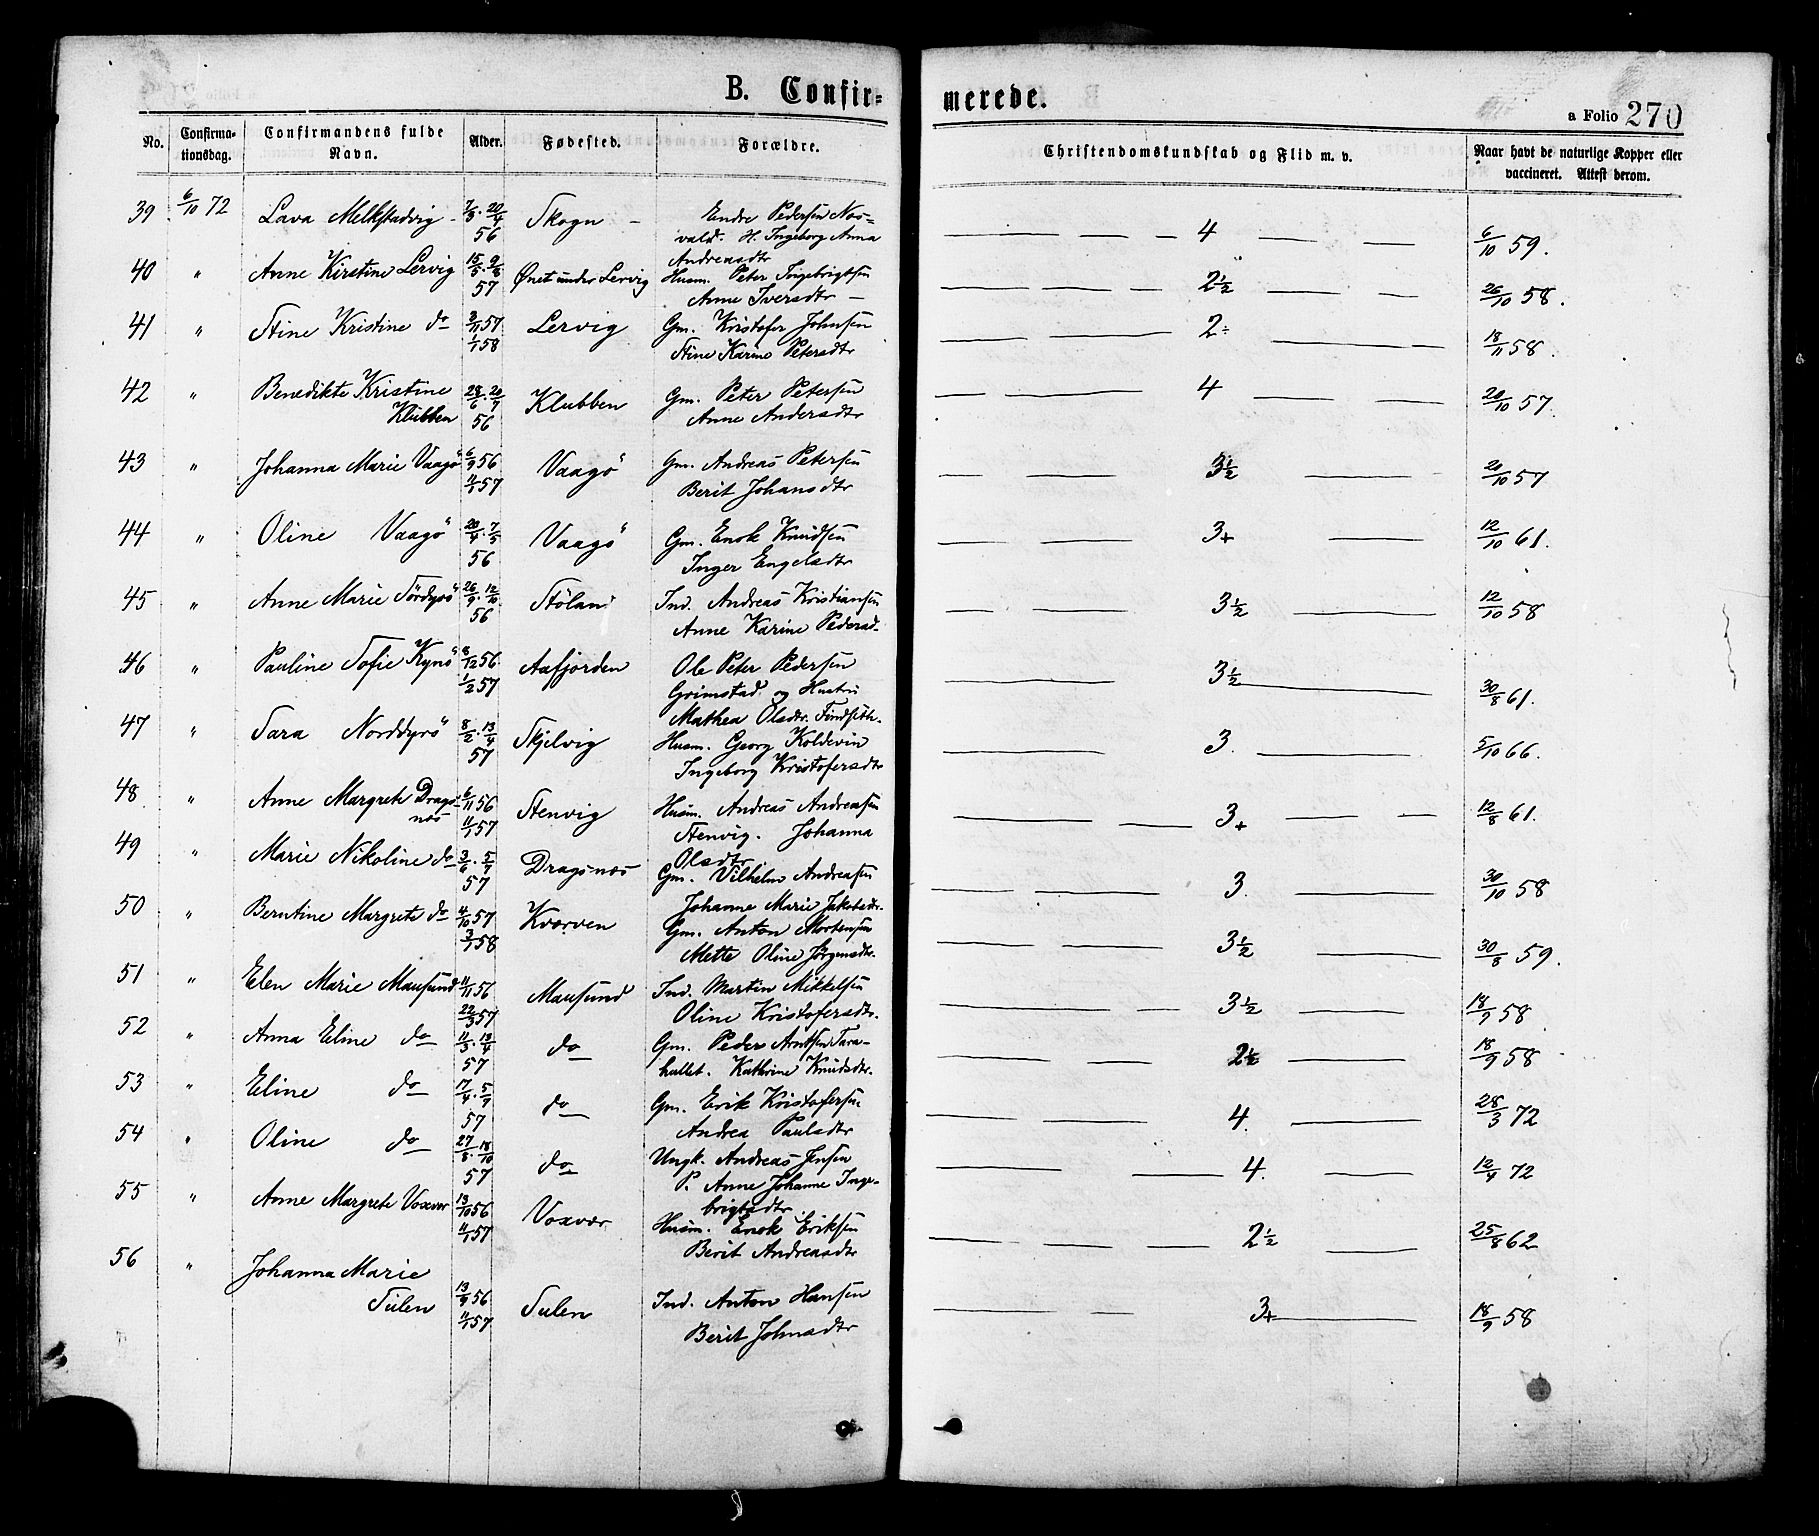 B. Confir=
merede.
a Folio 270
No. Confirma-tionsdag. Confirmandens fulde Navn. Alder. Fødested. Forældre. Christendomskundskab og Flid m. v. Naar havt de naturlige Kopper eller vaccineret. Attest derom.
39 6/10 72 Lava Melkstadvig - 7/3. 20/4 56 Skogn - Endre Pedersen Nos=
vald. H. Ingeborg Anna
Andreasdtr 4 6/10 59.
40 " Anne Kirstine Lervig 15/5. 9/8 57 Ønet under Lervig Husm. Peter Ingebrigtsen
Anne Iversdtr - 2½ 26/10 58.
41 " Stine Kristine do 3/11 57 1/1 58 Lervig Gm. Kristofer Johnsen
Stine Karine Petersdtr 2÷ 18/11 58.
42 " Benedikte Kristine
Klubben 28/6. 20/7 56 Klubben Gm. Peter Petersen
Anne Andersdtr 4 20/10 57.
43 " Johanna Marie Vaagö 6/9 56 11/1 57 Vaagö Gm. Andreas Petersen
Berit Johansdtr 3½ 20/10 57
44 " Oline Vaagö 20/4. 7/5 56 Vaagö Gm. Enok Knudsen
Inger Engelsdtr 3+ 12/10 61.
45 " Anne Marie Sördyrö 26/9. 12/10. 56 Stölan Ind. Andreas Kristiansen
Anne Karine Pedersd. 3½ 12/10 58
46 " Pauline Sofie Kynö 8/12 56. 1/2 57 Aafjorden Ole Peter Pedersen
Grimstad og Hustru
Mathea Olsdtr. Findseth. 3½ 30/8 61.
47 " Sara Norddyrö 8/2. 13/4 57 Skjelvig Husm. Georg Koldevin
Ingeborg Kristofersdtr 3. 5/10 66.
48 " Anne Margrete Drags-
næs 6/11 56 11/1 57 Stenvig Husm. Andreas Andreasen
Stenvig. Johanna
Olsdtr 3+ 12/8 61.
49 " Marie Nikoline do 3/6. 5/7 57 Dragsnæs Gm. Vilhelm Andreasen
Johanne Marie Jakobsdtr. 3. 30/10 58
50 " Berntine Margrete do 4/10 57 3/1 58 Kværven Gm. Anton Mortensen
Mette Oline Jörgensdtr. 3½ 30/8 59.
51 " Elen Marie Mausund 11/11 56 22/3 57 Mausund Ind. Martin Mikkelsen
Oline Kristofersdtr. 3½ 18/9 58
52 " Anna Eline do 11/3. 13/4 57 do Gm. Peder Arntsen Tara-
hallet. Kathrine Knudsdtr. 2½ 18/9 58
53 " Eline do 17/4. 5/7 57 do Gm. Erik Kristofersen
Andrea Paulsdtr 4. 28/3 72
54 " Oline do 27/8. 18/10 57 do Ungk. Andreas Jensen
P. Anne Johanne Inge-
brigtsdtr. 4. 12/4 72
55 " Anne Margrete Voxvær 13/10 56 11/1 57 Voxvær Husm. Enok Eriksen
Berit Andreasdtr 2½ 25/8 62
56 " Johanna Marie
Sulen 13/9 56 11/1 57 Sulen Ind. Anton Hansen
Berit Johnsdtr 3+ 18/9 58